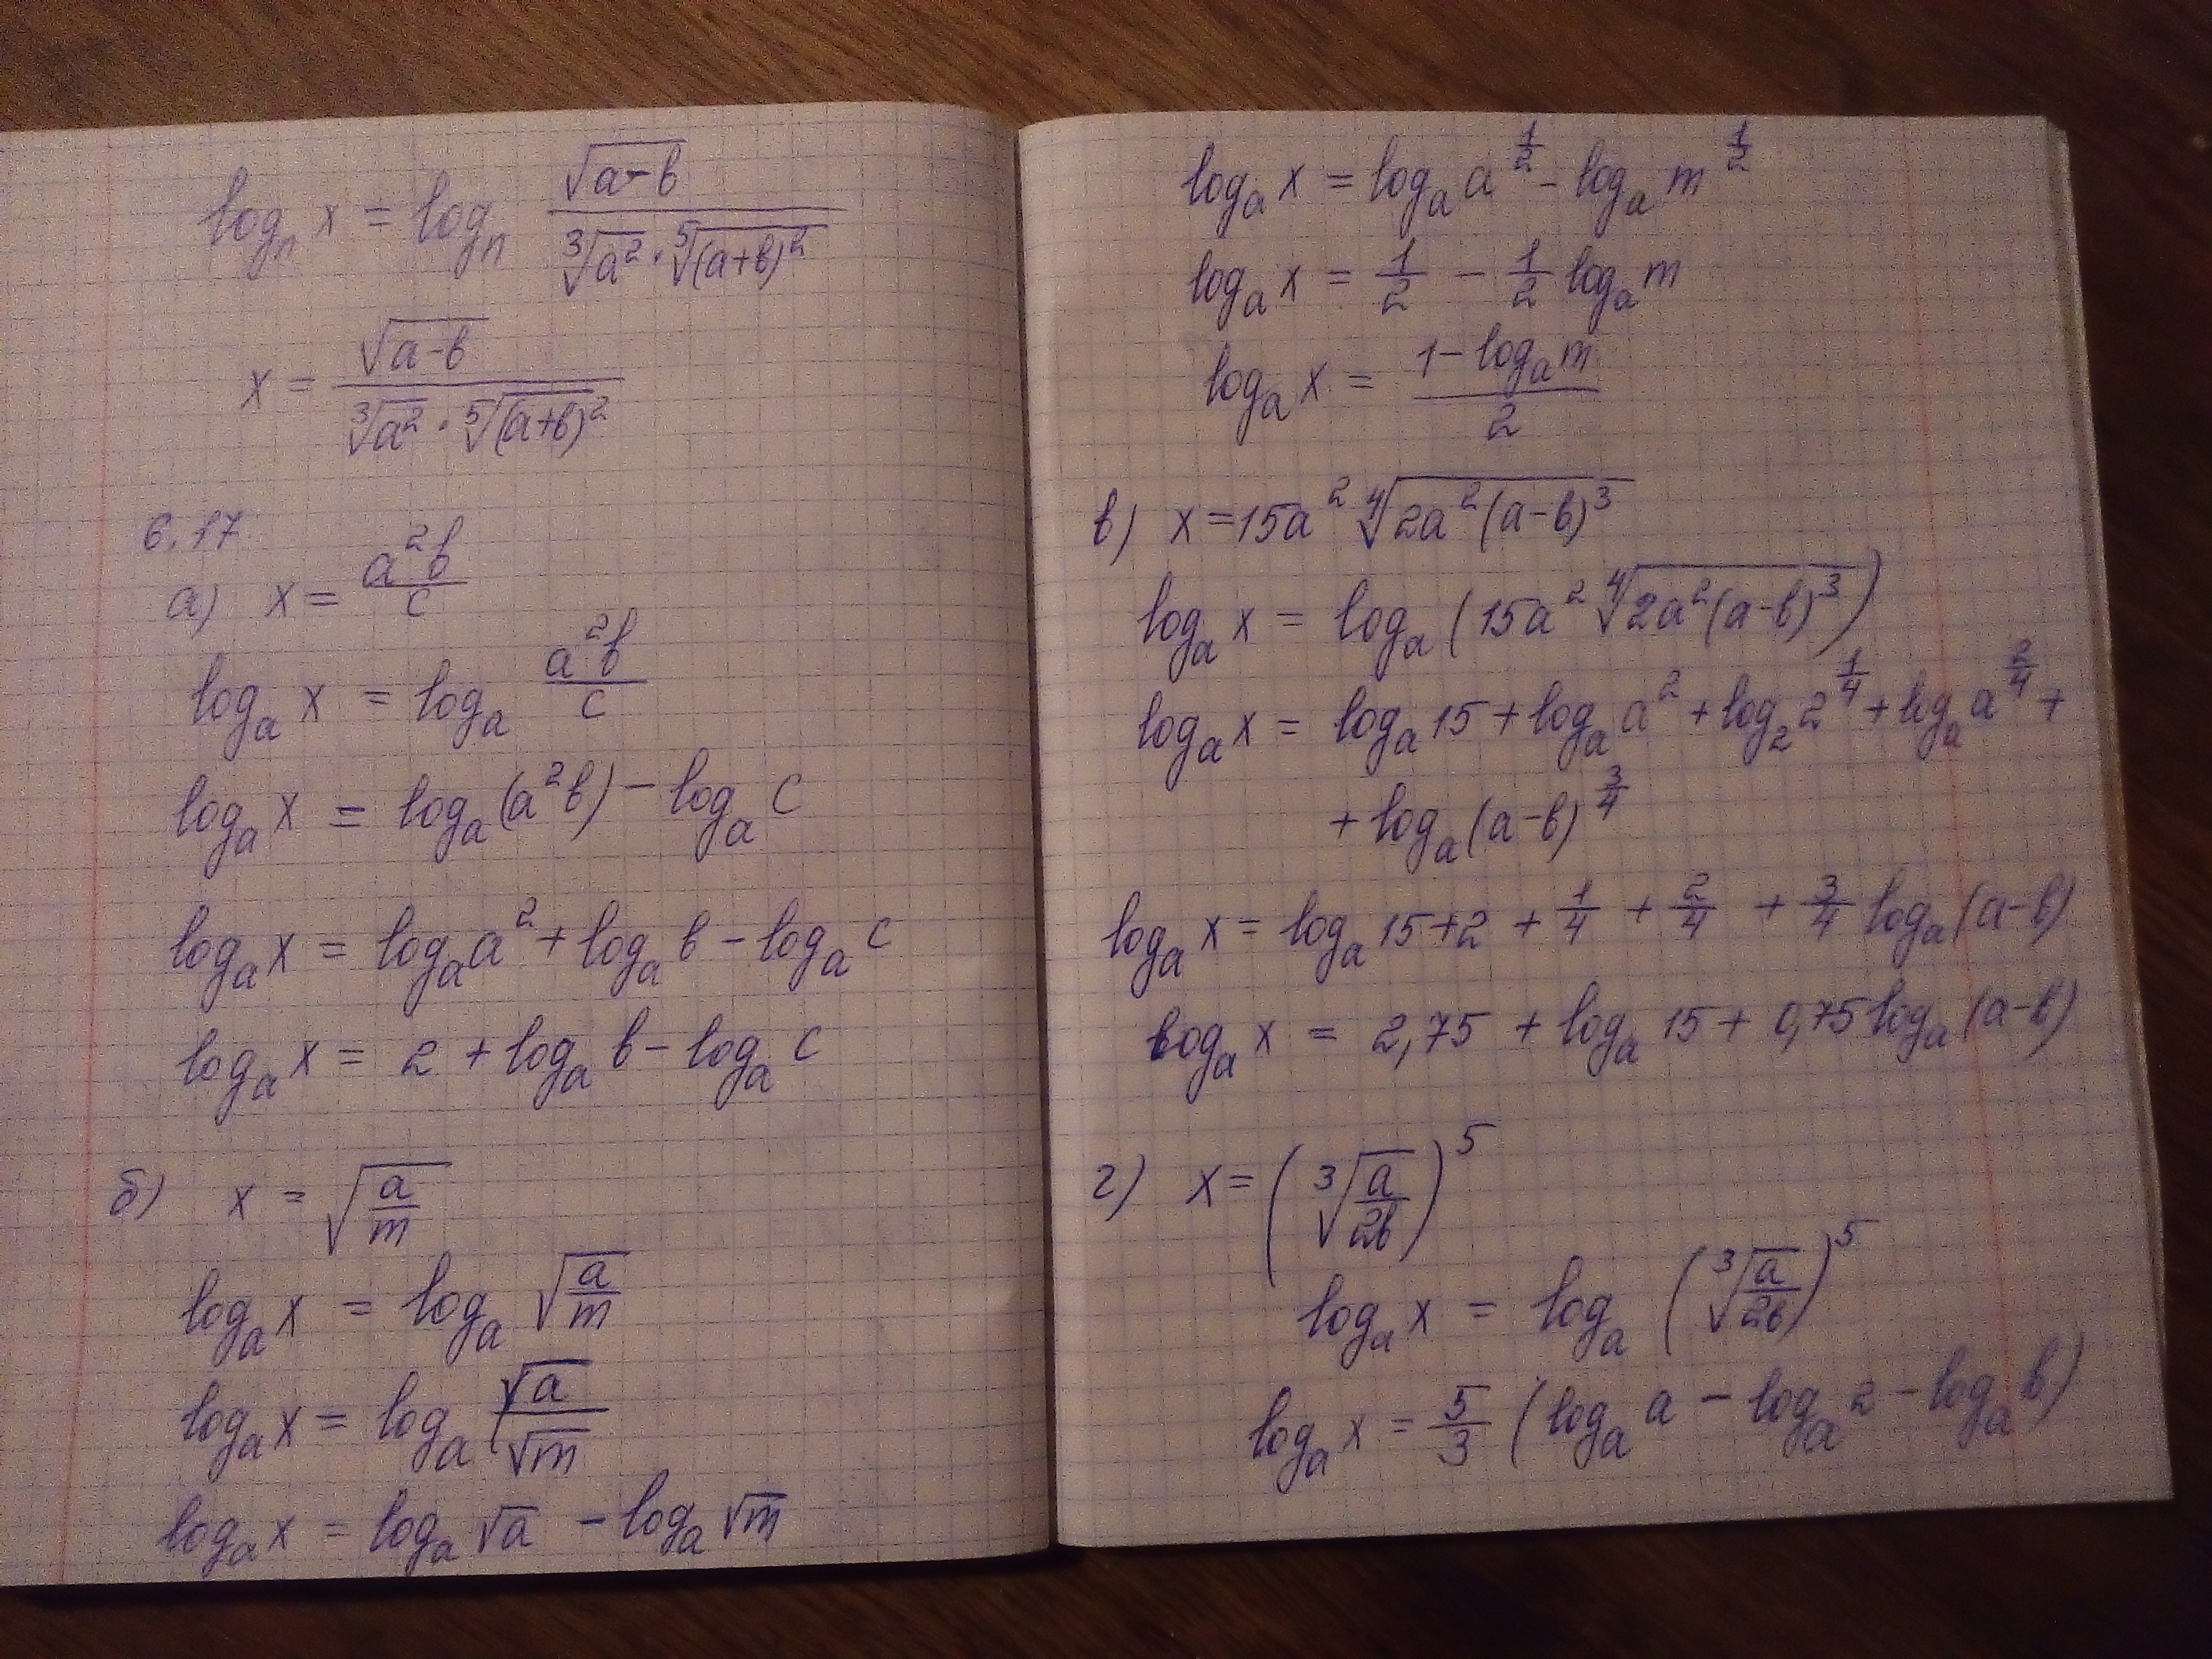 logₙ x = logₙ √(a-b) / (∛(a²) · ⁵√((a+b)²))
x = √(a-b) / (∛(a²) · ⁵√((a+b)²))
6.17
а) x = a²b/c
logₐ x = logₐ a²b/c
logₐ x = logₐ (a²b) - logₐ c
logₐ x = logₐ a² + logₐ b - logₐ c
logₐ x = 2 + logₐ b - logₐ c
б) x = √(a/m)
logₐ x = logₐ √(a/m)
logₐ x = logₐ √a/√m
logₐ x = logₐ √a - logₐ √m
logₐ x = logₐ a^(1/2) - logₐ m^(1/2)
logₐ x = 1/2 - 1/2 logₐ m
logₐ x = (1 - logₐ m)/2
в) x = 15a² ⁴√(2a²(a-b)³)
logₐ x = logₐ (15a² ⁴√(2a²(a-b)³))
logₐ x = logₐ 15 + logₐ a² + log₂ 2^(1/4) + logₐ a^(2/4) +
+ logₐ (a-b)^(3/4)
logₐ x = logₐ 15 + 2 + 1/4 + 2/4 + 3/4 logₐ (a-b)
logₐ x = 2,75 + logₐ 15 + 0,75 logₐ (a-b)
г) x = (∛(a/2b))⁵
logₐ x = logₐ (∛(a/2b))⁵
logₐ x = 5/3 (logₐ a - logₐ 2 - logₐ b)